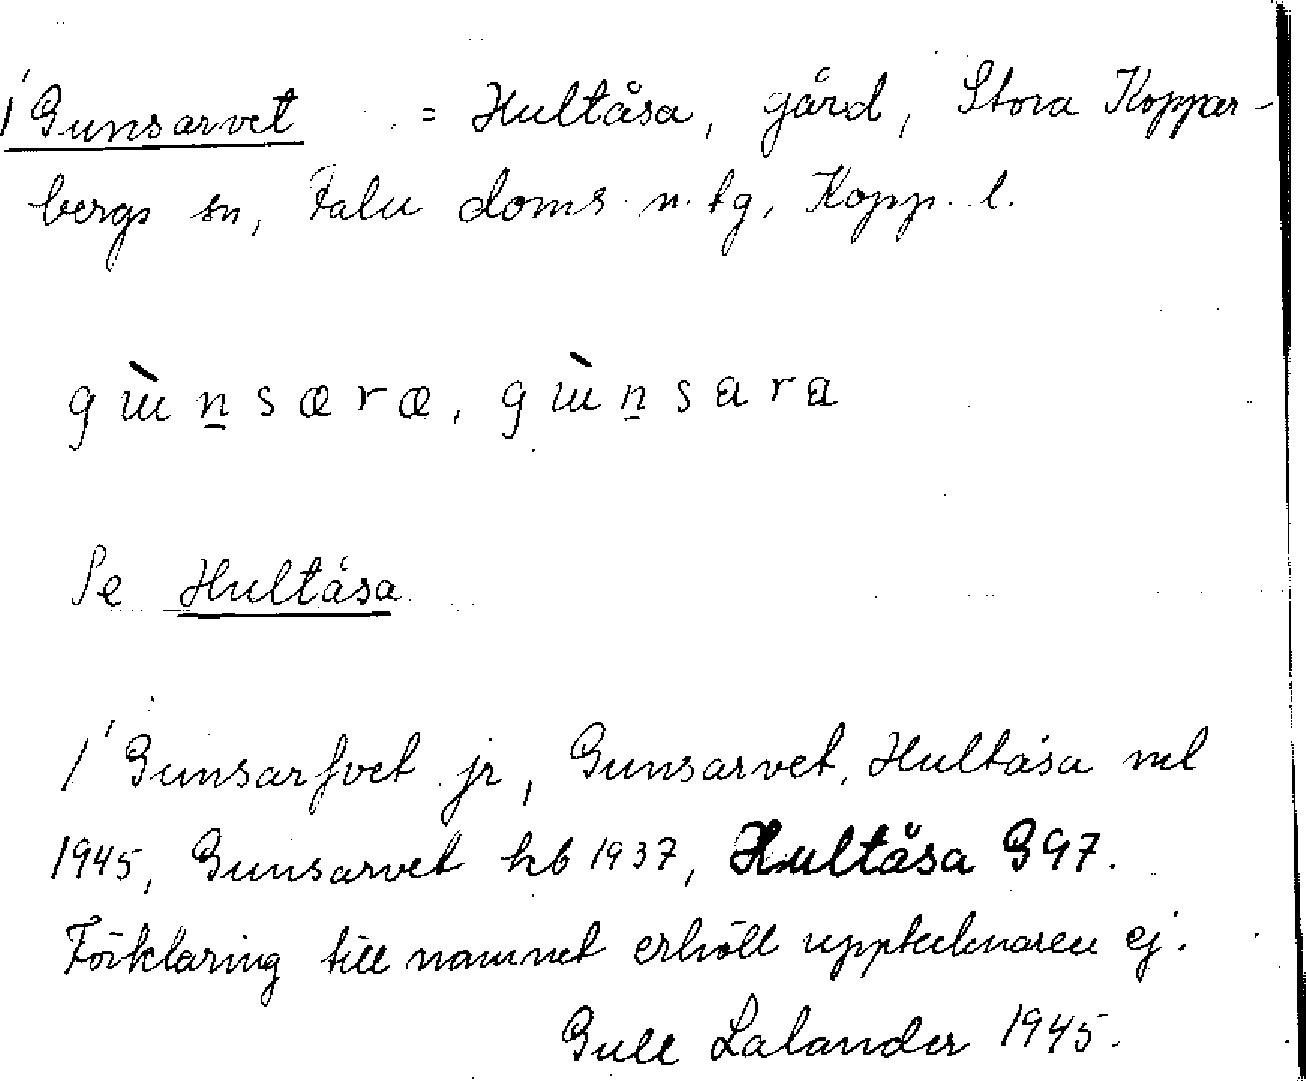 1́ Gunsarvet = Hultåsa, gård, Stora Koppar-
bergs sn, Falu doms. n. tg, Kopp. l.
gɯ̀n̲særæ, gɯ̀n̲sara
Se Hultåsa
1́ Gunsarfvet jr, Gunsarvet, Hultåsa ml
1945, Gunsarvet hb 1937, Hultåsa G97.
Förklaring till namnet erhöll upptecknaren ej.
Gull Lalander 1945.